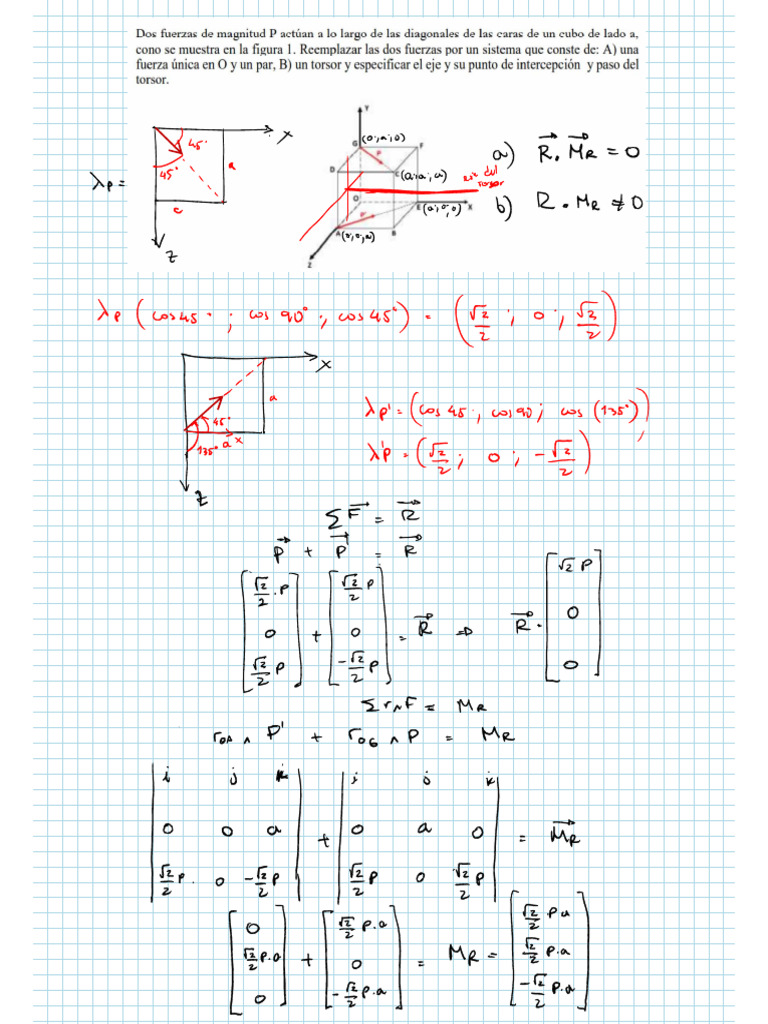 Dos fuerzas de magnitud P actúan a lo largo de las diagonales de las caras de un cubo de lado a,
cono se muestra en la figura 1. Reemplazar las dos fuerzas por un sistema que conste de: A) una
fuerza única en O y un par, B) un torsor y especificar el eje y su punto de intercepción y paso del
torsor.
λp =
45°
45°
a
c
X
Z
Y
G (0;a;0)
F
D
C (a;a;a)
O
E (a;0;0)
X
A (0;0;a)
B
Z
Eje del
Torsor
a) R⃗ . M⃗R = 0
b) R . MR ≠ 0
λp (cos 45°; cos 90°; cos 45°) = (√2/2 ; 0 ; √2/2)
X
a
45°
135°
a
x
Z
λp' = (cos 45; cos 90; cos (135°))
λ'p = (√2/2 ; 0 ; -√2/2)
ΣF⃗ = R⃗
P⃗ + P⃗' = R⃗
[√2/2 . P ; 0 ; √2/2 P] + [√2/2 P ; 0 ; -√2/2 P] = R⃗ ⇒ R⃗ = [√2 P ; 0 ; 0]
Σ r∧F = MR
rOA ∧ P' + rOG ∧ P = MR
| i j k | + | i j k |
| 0 0 a | + | 0 a 0 | = M⃗R
| √2/2 P. 0 -√2/2 P | | √2/2 P 0 √2/2 P |
[0 ; √2/2 P.a ; 0] + [√2/2 P.a ; 0 ; -√2/2 P.a] = MR = [√2/2 Pa ; √2/2 P.a ; -√2/2 P.a]